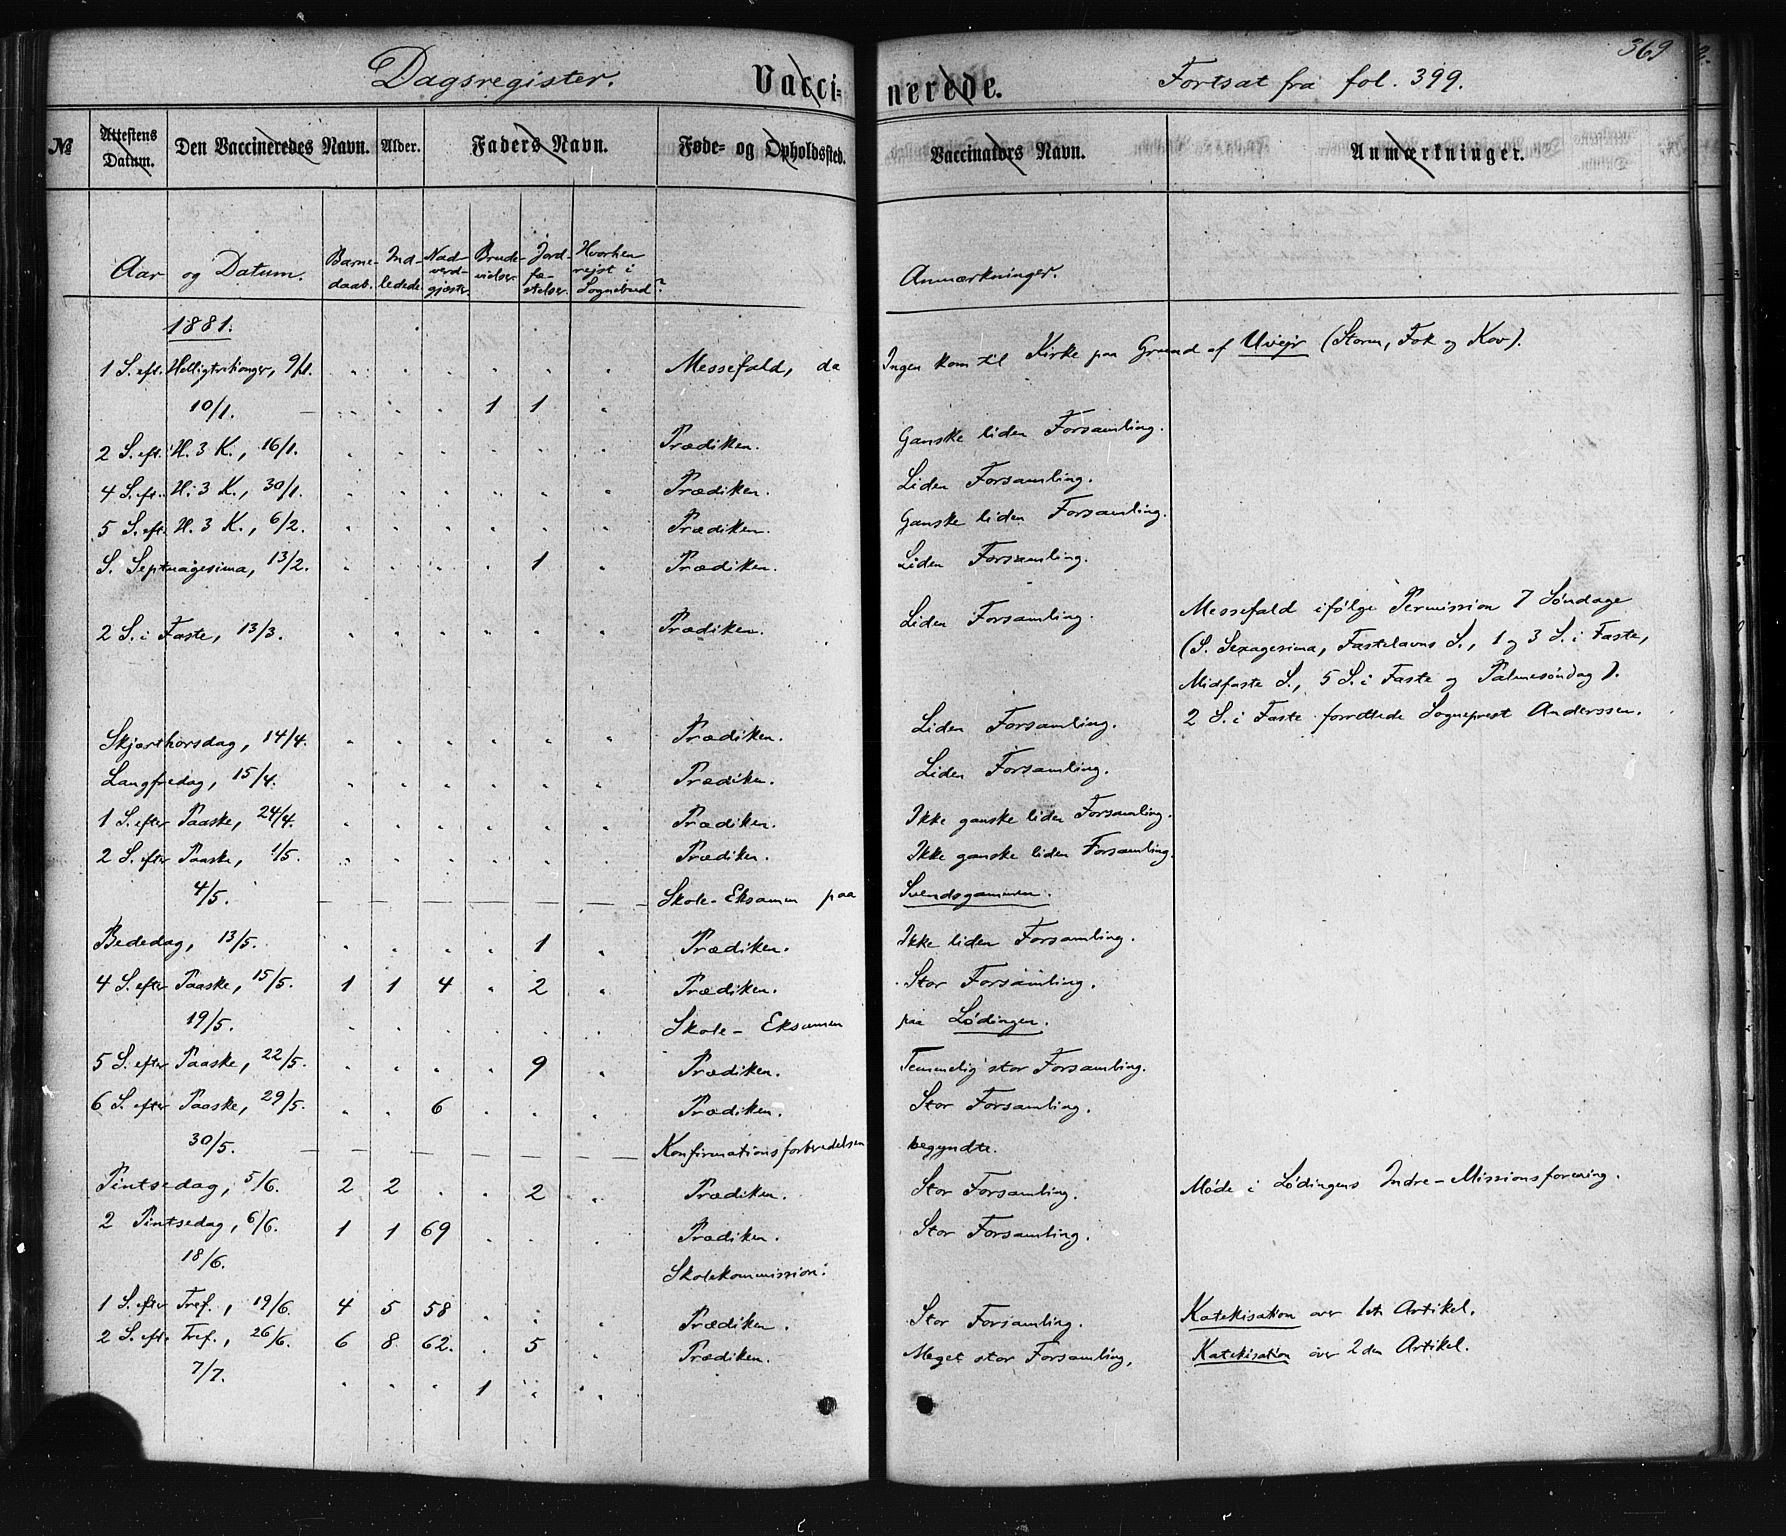 369
Dagsregister. Vaccinerede. Fortsat fra fol. 399.
№ Attestens Datum. Den Vaccineredes Navn. Alder. Faders Navn. Føde- og Opholdssted. Vaccinators Navn. Anmærkninger.
Aar og Datum. Barnedaab. Indledede. Nadverdgjæster. Brudevielser. Jordfæstelser. Hvorhen rejst i Sognebud? Anmærkninger.
1881.
1 S. eft. Helligtrekonger, 9/1. . . . . . . Messefald, da Ingen kom til Kirke paa Grund af Uvejr (Storm, Fok og Kov).
10/1. — . . . 1 1 .
2 S. eft. H. 3 K., 16/1. . . . . . . Prædiken. Ganske liden Forsamling.
4 S. eft. H. 3 K., 30/1. . . . . . . Prædiken. Liden Forsamling.
5 S. eft. H. 3 K., 6/2. . . . . . . Prædiken. Ganske liden Forsamling.
S. Septuagesima, 13/2. . . . . 1 . Prædiken. Liden Forsamling.
2 S. i Faste, 13/3. . . . . . . Prædiken. Liden Forsamling. Messefald ifølge Permission 7 Søndage
(S. Sexagesima, Fastelavns S., 1 og 3 S. i Faste,
Midfaste S., 5 S. i Faste og Palmesøndag).
2 S. i Faste forrettede Sogneprest Anderssen.
Skjærthorsdag, 14/4. . . . . . . Prædiken. Liden Forsamling.
Langfredag, 15/4. . . . . . . Prædiken. Liden Forsamling.
1 S. efter Paaske, 24/4. . . . . . . Prædiken. Ikke ganske liden Forsamling.
2 S. efter Paaske, 1/5. . . . . . . Prædiken. Ikke ganske liden Forsamling.
4/5. — — — — — — Skole-Eksamen paa Svendsgammen.
Bededag, 13/5. . . . . 1 . Prædiken. Ikke liden Forsamling.
4 S. efter Paaske, 15/5. 1 1 4 . 2 . Prædiken. Stor Forsamling.
19/5. . . . . . . Skole-Eksamen paa Lødingen.
5 S. efter Paaske, 22/5. . . . . 9 . Prædiken. Temmelig stor Forsamling.
6 S. efter Paaske, 29/5. . . 6 . . . Prædiken. Stor Forsamling.
30/5. — — — — — — Konfirmationsforberedelsen begyndte.
Pintsedag, 5/6. 2 2 . . 2 . Prædiken. Stor Forsamling. Møde i Lødingens Indre-Missionsforening.
2 Pintsedag, 6/6. 1 1 69 . . . Prædiken. Stor Forsamling.
18/6. Skolekommission.
1 S. efter Tref., 19/6. 4 5 58 . . . Prædiken. Stor Forsamling. Katekisation over 1ste Artikel.
2 S. eft. Tref., 26/6. 6 8 62. . 5 . Prædiken. Meget stor Forsamling, Katekisation over 2den Artikel.
7/7. . . . 1 . .